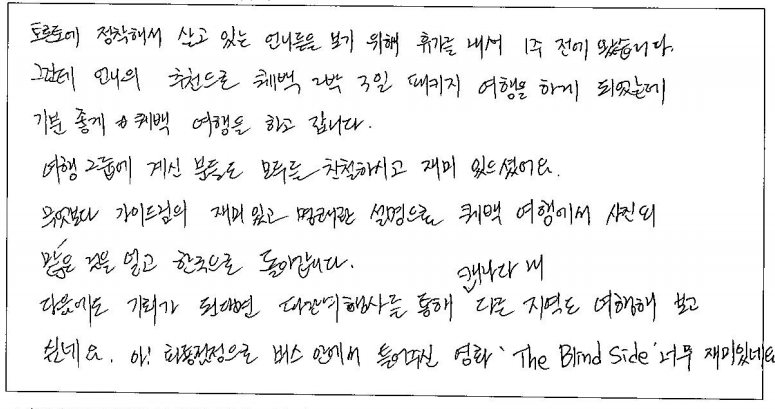 토론토에 정착해서 살고 있는 언니들을 보기 위해 휴가를 내서 1주 전에 왔습니다.
그런데 언니의 추천으로 퀘백 2박 3일 패키지 여행을 하게 되었는데
기분 좋게 퀘백 여행을 하고 갑니다.
여행 그룹에 계신 분들도 모두들 친절하시고 재미 있으셨어요.
무엇보다 가이드님의 재미있고 명쾌한 설명으로 퀘백 여행에서 사진외
많은 것을 얻고 한국으로 돌아갑니다.
다음에도 기회가 된다면 여행사를 통해 캐나다 내 다른 지역도 여행해 보고
싶네요. 아! 버스 안에서 틀어주신 영화 'The Blind Side' 너무 재미있네요